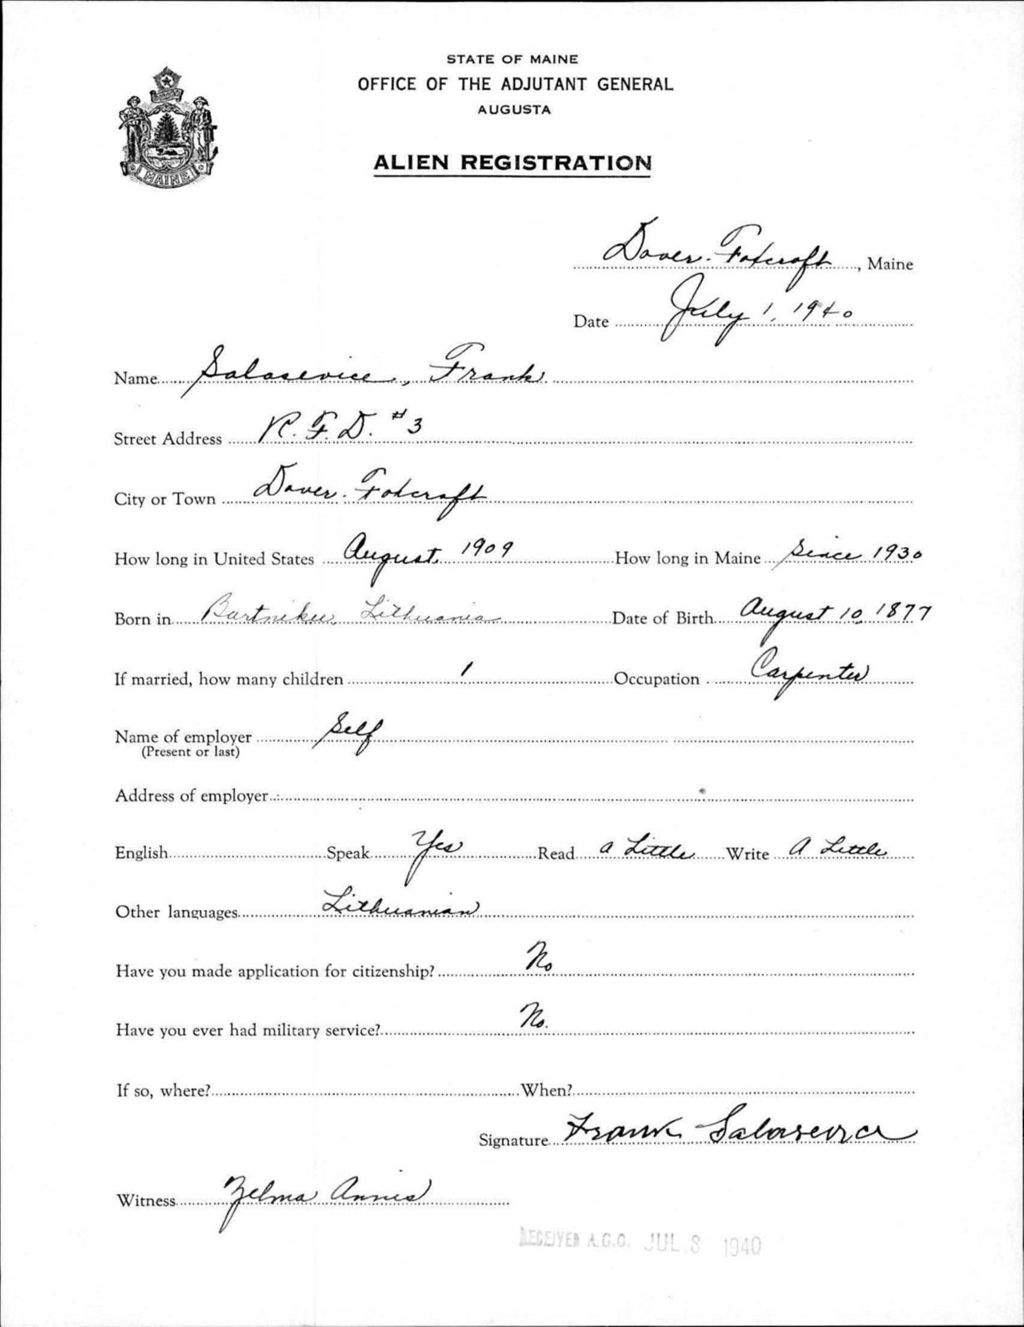 STATE OF MAINE
OFFICE OF THE ADJUTANT GENERAL
AUGUSTA
ALIEN REGISTRATION
MAINE
Dover-Foxcroft, Maine
Date July 1, 1940
Name Salasevice, Frank
Street Address R.F.D. #3
City or Town Dover-Foxcroft
How long in United States August, 1909 How long in Maine Since 1930
Born in Lithuania Date of Birth August 10, 1877
If married, how many children 1 Occupation Carpenter
Name of employer Self
(Present or last)
Address of employer
English Speak Yes Read a Little Write A Little
Other languages Lithuanian
Have you made application for citizenship? No
Have you ever had military service? No.
If so, where? When?
Signature Frank
Witness Zelma Annis
RECEIVED A.G.O. JUL 8 1940